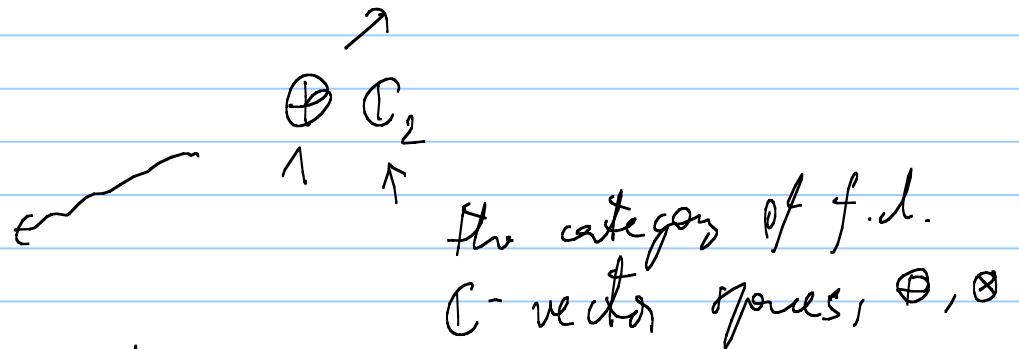 ⊕ ℂ₂
the category of f.d.
ℂ-vector spaces, ⊕, ⊗